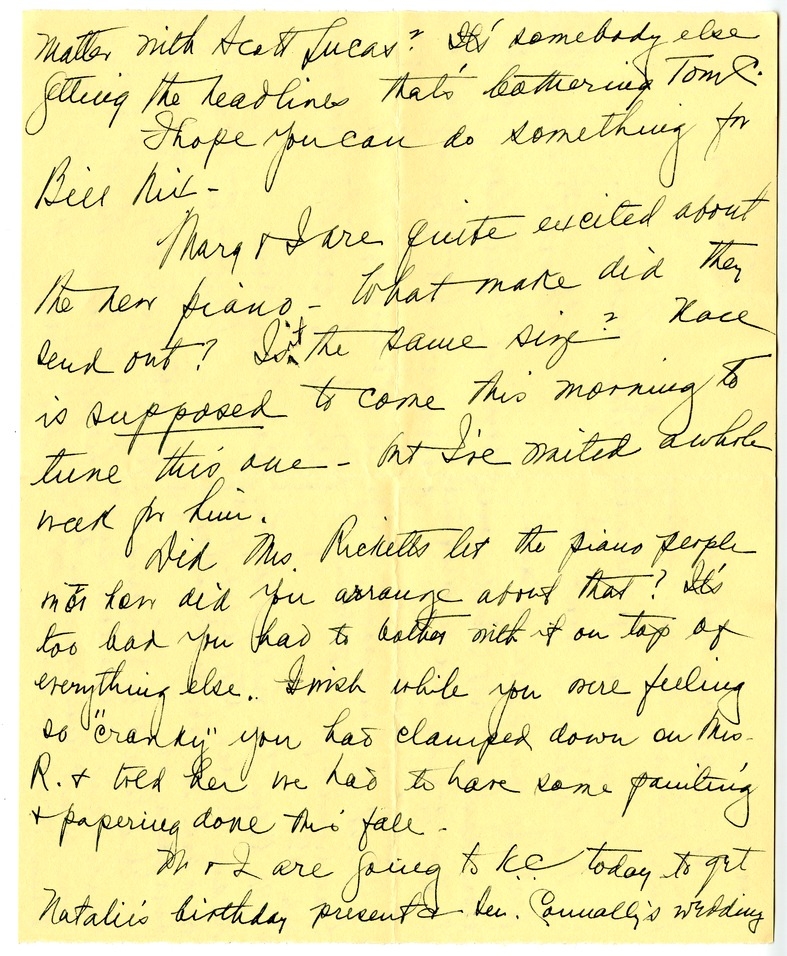 matter with Scott Lucas? It's somebody else
getting the headlines that's bothering Tom C.
I hope you can do something for
Bill Nix -
Marg & I are quite excited about
the new piano - What make did they
send out? Is it the same size? Kace
is supposed to come this morning to
tune this one - but I've waited a whole
week for him.
Did Mrs. Ricketts let the piano people
in or how did you arrange about that? It's
too bad you had to bother with it on top of
everything else. I wish while you were feeling
so "cranky" you had clamped down on Mrs.
R. & told her we had to have some painting
& papering done this fall -
M & I are going to K.C. today to get
Natalie's birthday present & Sen. Connally's wedding